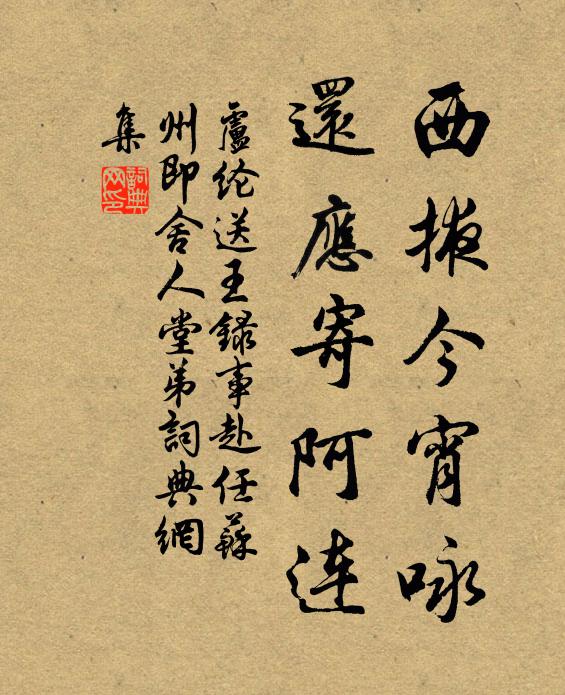 西掖今宵咏
還應寄阿連
盧纶送王録事赴任蘇
州即舍人堂弟詞典網
集
詞典网印